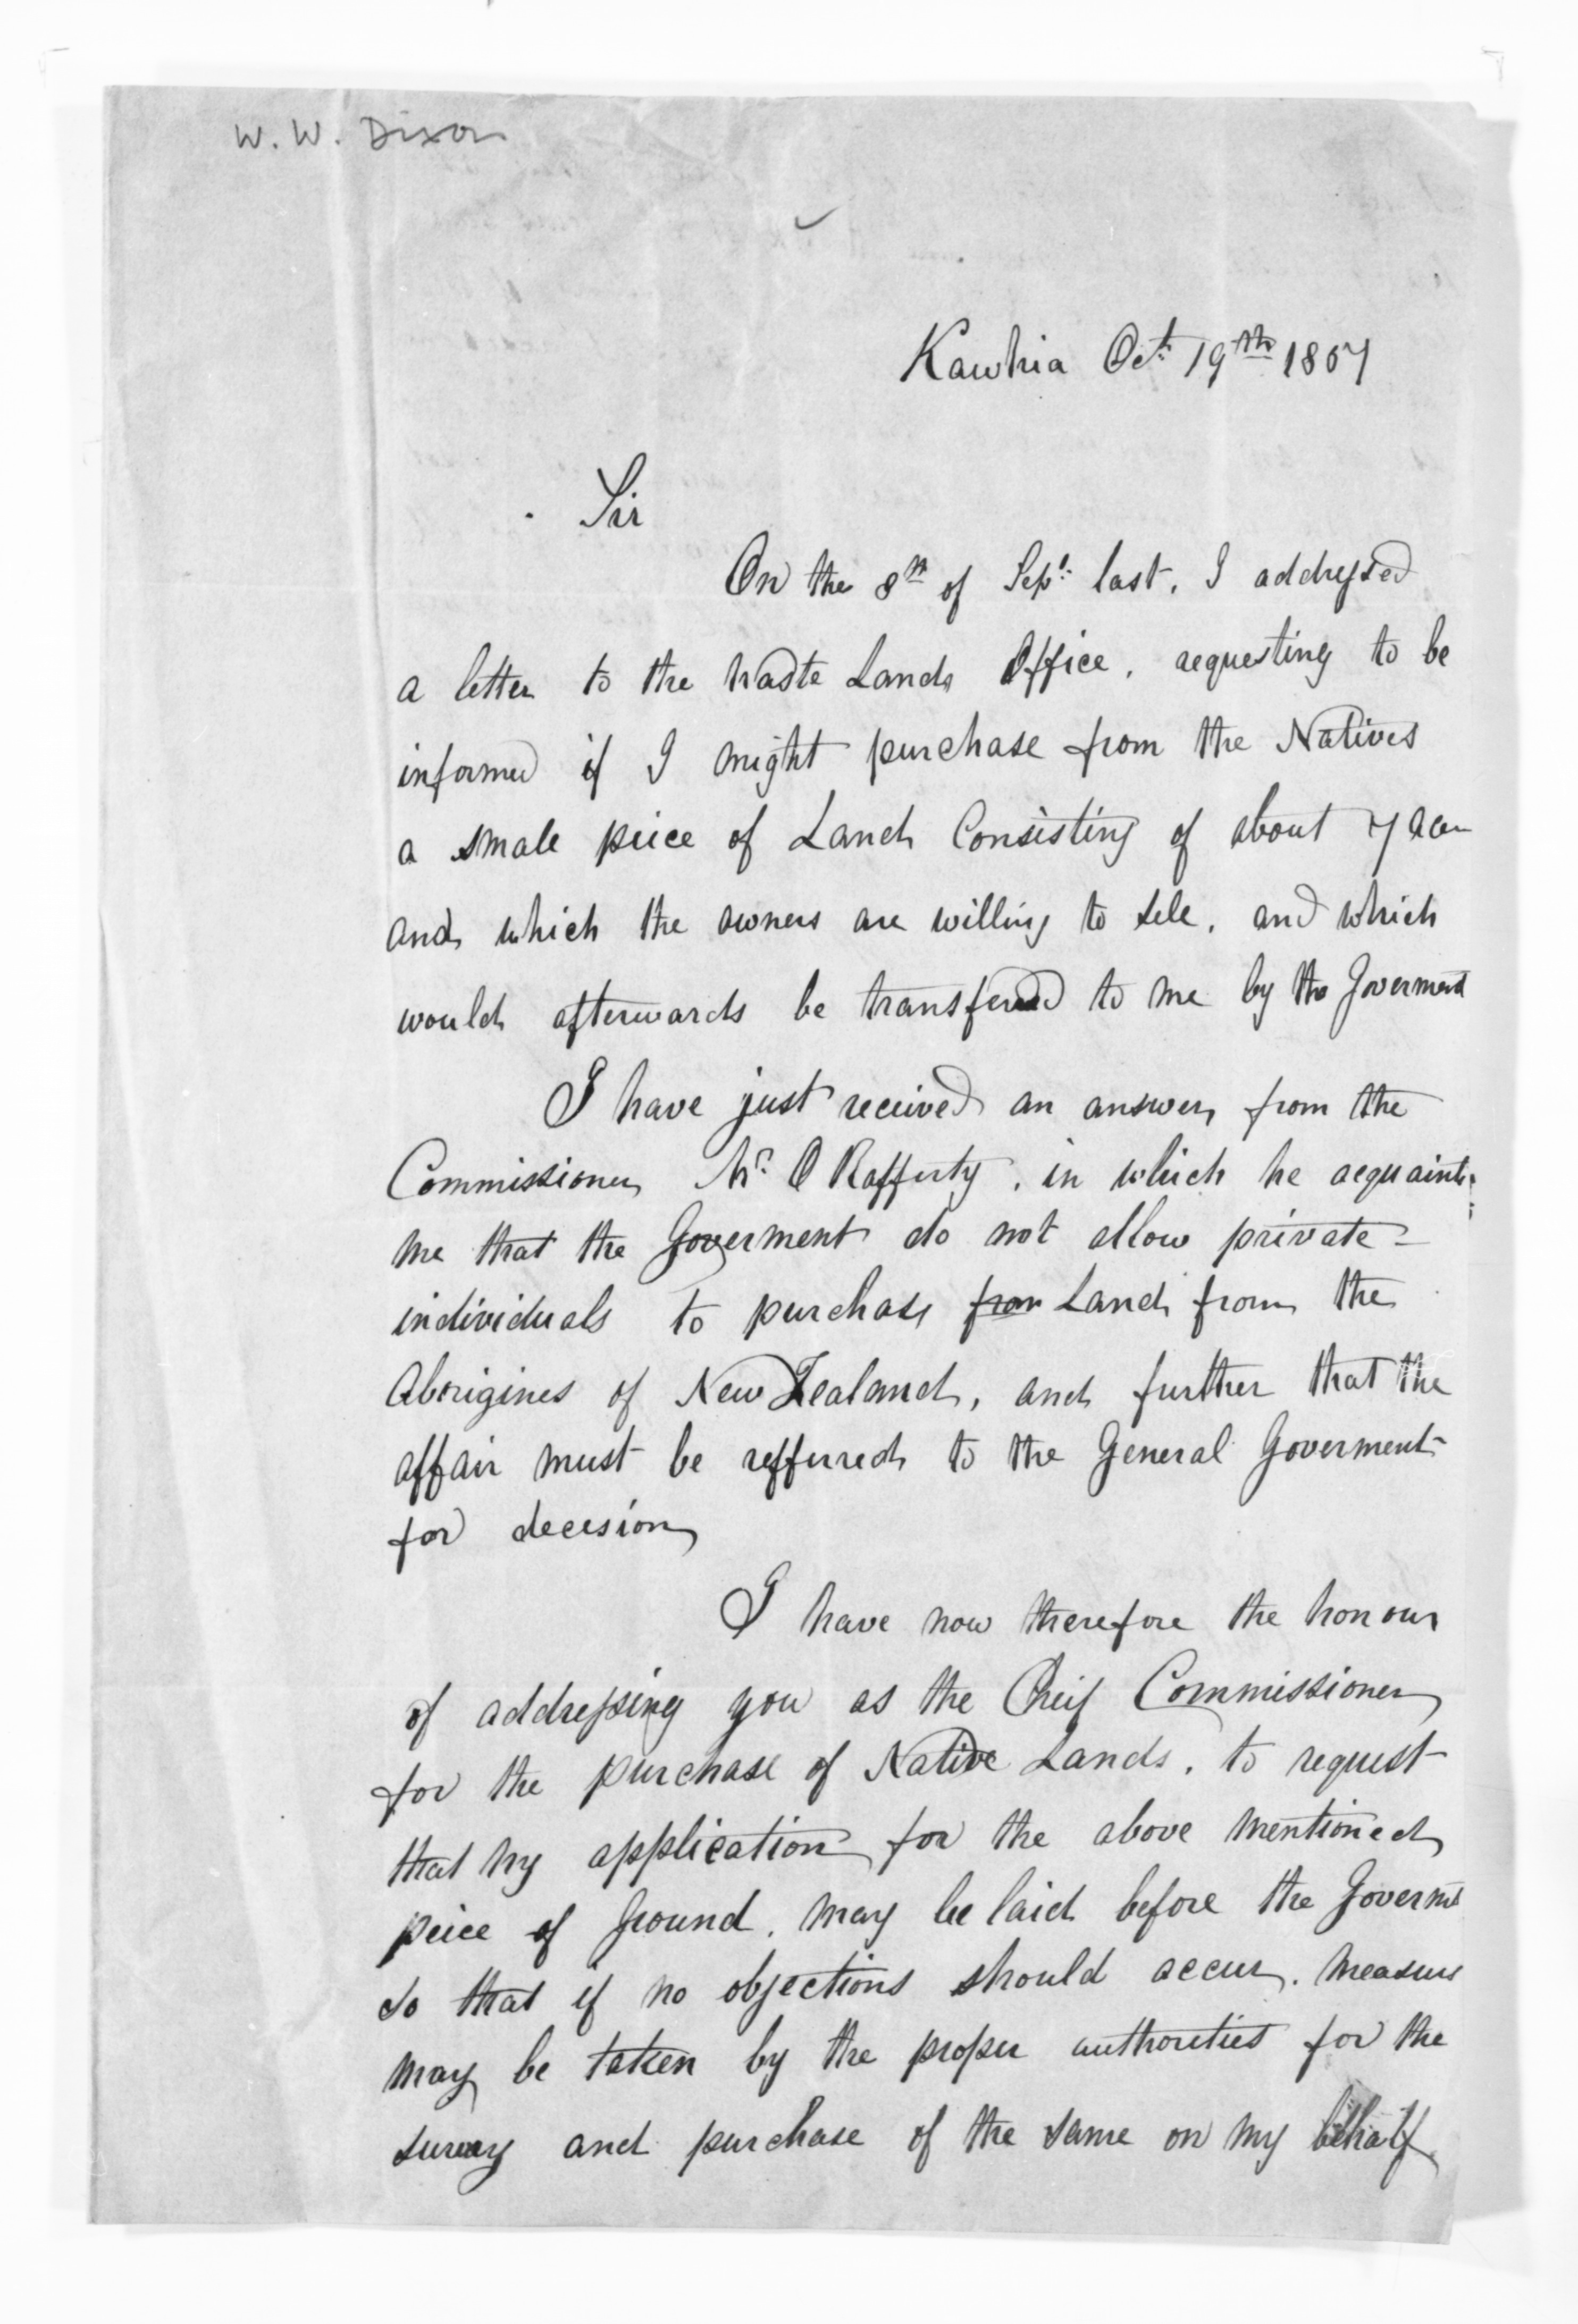 W. W. Dixon
Kawhia Oct. 19th 1857
Sir
On the 8th of Sept. last, I addressed
a letter to the Waste Lands Office, requesting to be
informed if I might purchase from the Natives
a smale peice of Land Consisting of about 7 acre
and which the owners are willing to sele, and which
would afterwards be transfered to me by the Goverment
I have just received an answer from the
Commissioner Mr. O Rafferty, in which he acquaints
me that the Goverment do not allow private
individuals to purchase from Land from the
Aborigines of New Zealand, and further that the
affair must be refferred to the General Goverment
for decesion
I have now therefore the honour
of addressing you as the Cheif Commissioner
for the purchase of Native Lands, to request
that my application for the above mentioned
peice of ground, may be laid before the Governmt
so that if no objections should accur, measures
may be taken by the proper authorities for the
survey and purchase of the same on my behalf